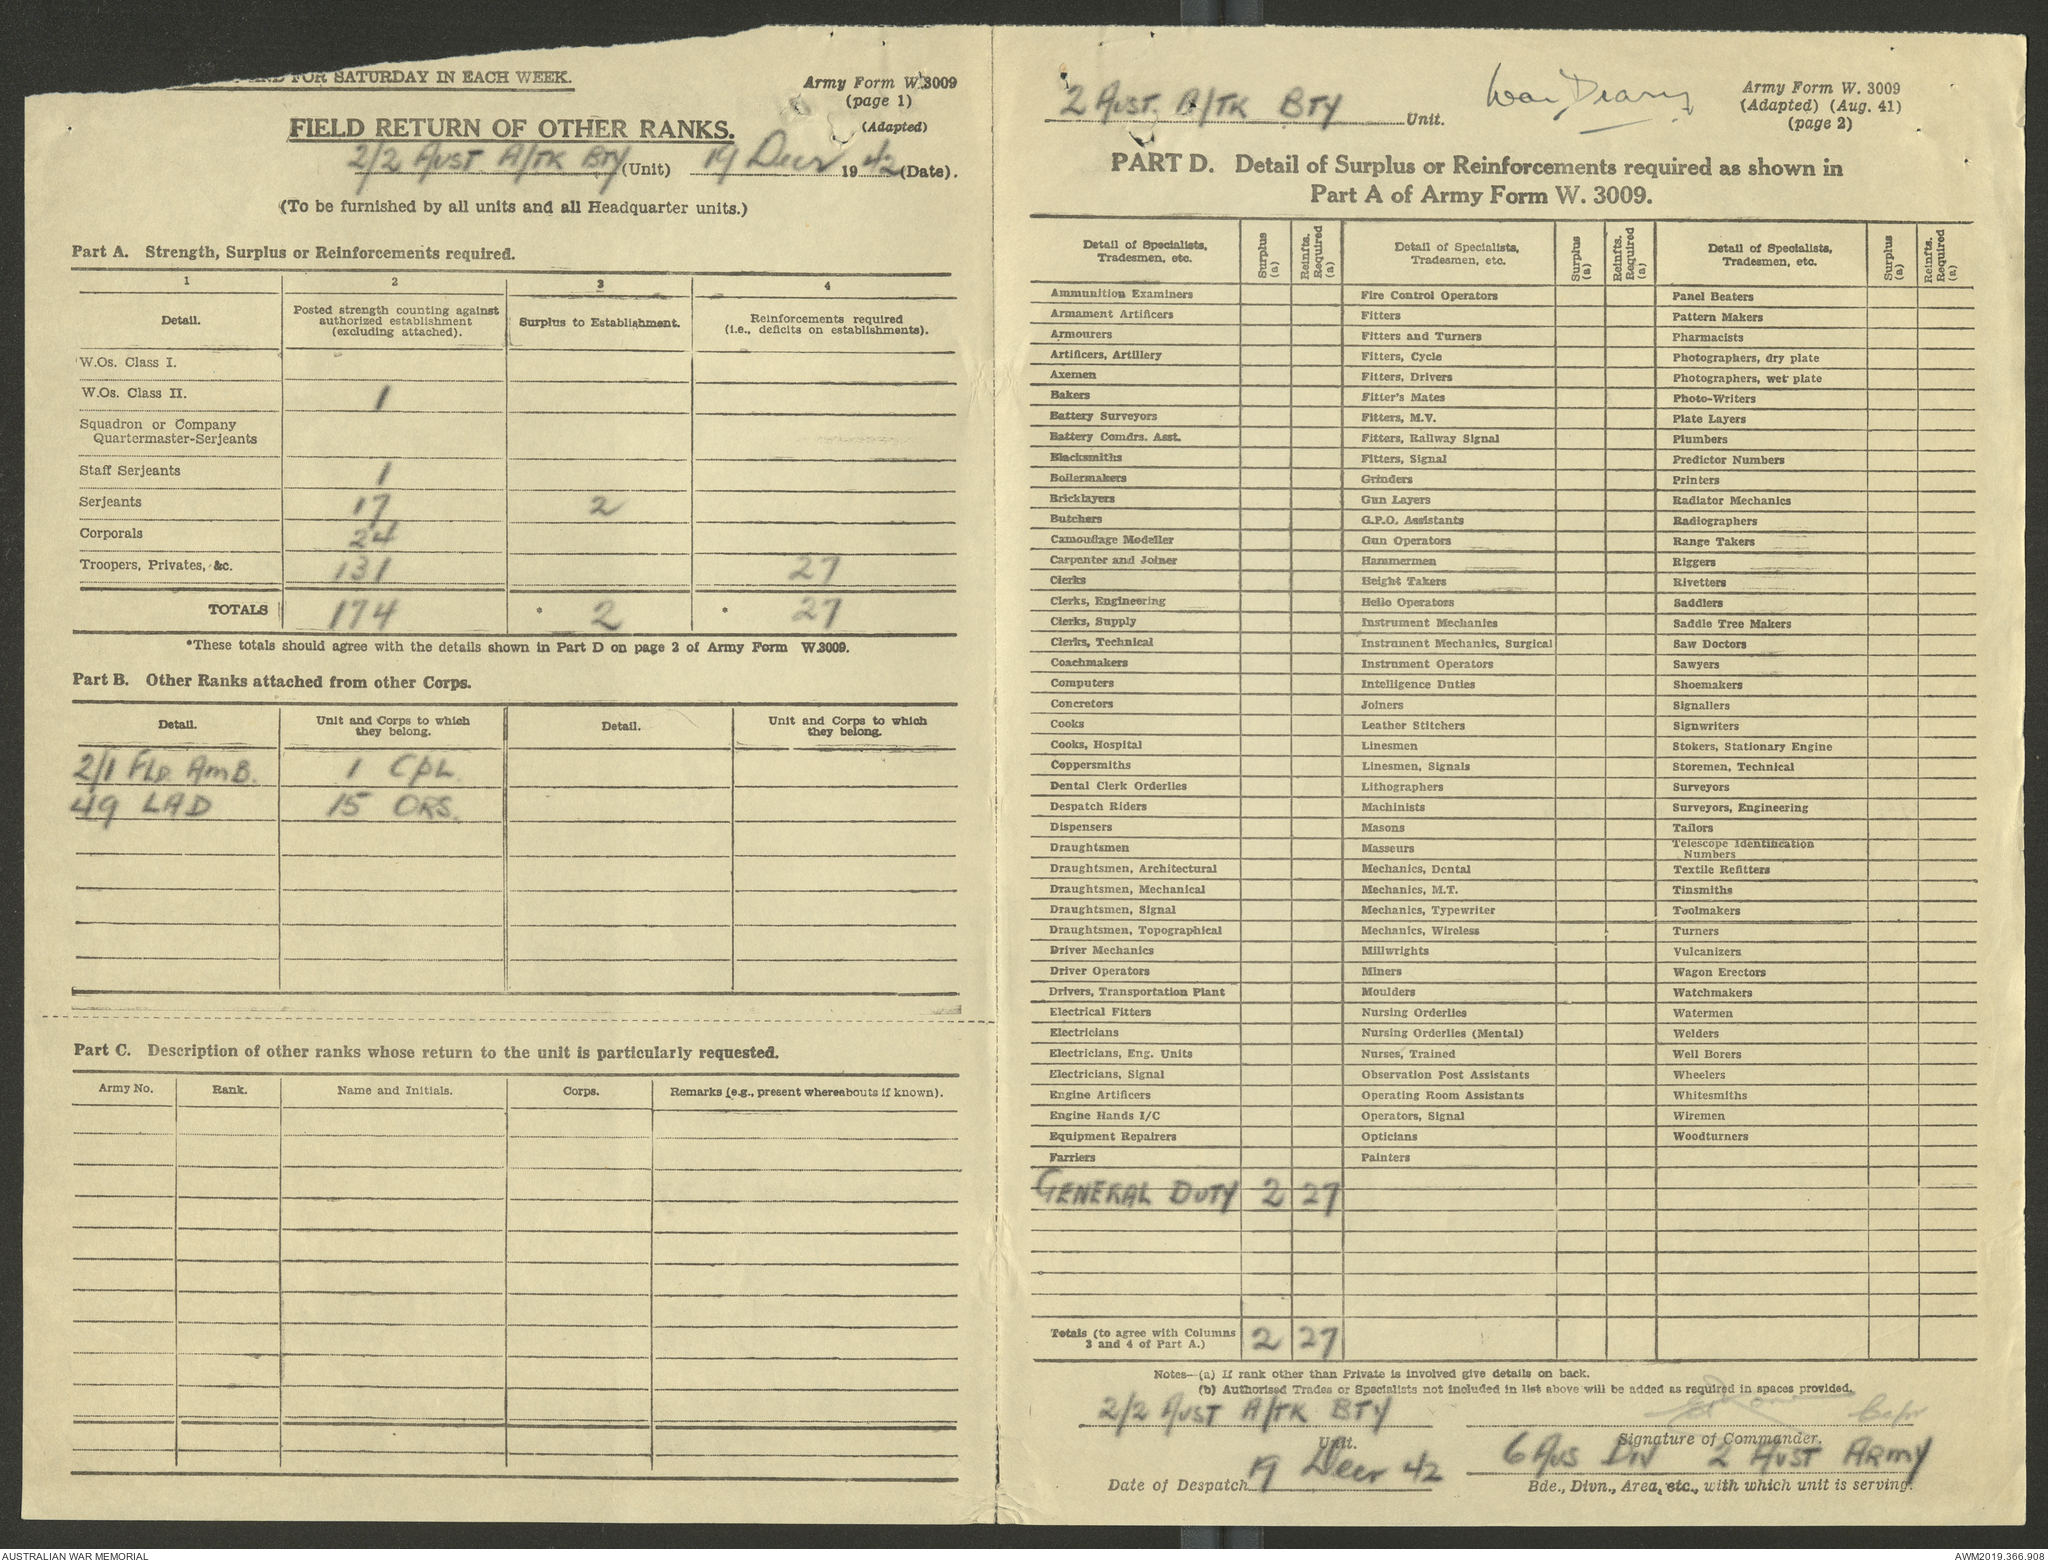 AND FOR SATURDAY IN EACH WEEK.
Army Form W.3009
(page 1)
(Adapted)
FIELD RETURN OF OTHER RANKS.
2/2 AUST A/TK BTY (Unit) 19 Decr 1942 (Date).
(To be furnished by all units and all Headquarter units.)
Part A. Strength, Surplus or Reinforcements required.
1 2 3 4
Detail. Posted strength counting against authorized establishment (excluding attached). Surplus to Establishment. Reinforcements required (i.e., deficits on establishments).
W.Os. Class I.
W.Os. Class II. 1
Squadron or Company
Quartermaster-Serjeants
Staff Serjeants 1
Serjeants 17 2
Corporals 24
Troopers, Privates, &c. 131 27
TOTALS 174 * 2 * 27
*These totals should agree with the details shown in Part D on page 2 of Army Form W.3009.
Part B. Other Ranks attached from other Corps.
Detail. Unit and Corps to which they belong. Detail. Unit and Corps to which they belong.
2/1 FLD AMB. 1 CPL.
49 LAD 15 ORS.
Part C. Description of other ranks whose return to the unit is particularly requested.
Army No. Rank. Name and Initials. Corps. Remarks (e.g., present whereabouts if known).
2 AUST. A/TK BTY Unit.
War Diary
Army Form W. 3009
(Adapted) (Aug. 41)
(page 2)
PART D. Detail of Surplus or Reinforcements required as shown in
Part A of Army Form W. 3009.
Detail of Specialists, Tradesmen, etc. Surplus (a) Reinfts. Required (a) Detail of Specialists, Tradesmen, etc. Surplus (a) Reinfts. Required (a) Detail of Specialists, Tradesmen, etc. Surplus (a) Reinfts. Required (a)
Ammunition Examiners Fire Control Operators Panel Beaters
Armament Artificers Fitters Pattern Makers
Armourers Fitters and Turners Pharmacists
Artificers, Artillery Fitters, Cycle Photographers, dry plate
Axemen Fitters, Drivers Photographers, wet plate
Bakers Fitter's Mates Photo-Writers
Battery Surveyors Fitters, M.V. Plate Layers
Battery Comdrs. Asst. Fitters, Railway Signal Plumbers
Blacksmiths Fitters, Signal Predictor Numbers
Boilermakers Grinders Printers
Bricklayers Gun Layers Radiator Mechanics
Butchers G.P.O. Assistants Radiographers
Camouflage Modeller Gun Operators Range Takers
Carpenter and Joiner Hammermen Riggers
Clerks Height Takers Rivetters
Clerks, Engineering Helio Operators Saddlers
Clerks, Supply Instrument Mechanics Saddle Tree Makers
Clerks, Technical Instrument Mechanics, Surgical Saw Doctors
Coachmakers Instrument Operators Sawyers
Computers Intelligence Duties Shoemakers
Concretors Joiners Signallers
Cooks Leather Stitchers Signwriters
Cooks, Hospital Linesmen Stokers, Stationary Engine
Coppersmiths Linesmen, Signals Storemen, Technical
Dental Clerk Orderlies Lithographers Surveyors
Despatch Riders Machinists Surveyors, Engineering
Dispensers Masons Tailors
Draughtsmen Masseurs Telescope Identification Numbers
Draughtsmen, Architectural Mechanics, Dental Textile Refitters
Draughtsmen, Mechanical Mechanics, M.T. Tinsmiths
Draughtsmen, Signal Mechanics, Typewriter Toolmakers
Draughtsmen, Topographical Mechanics, Wireless Turners
Driver Mechanics Millwrights Vulcanizers
Driver Operators Miners Wagon Erectors
Drivers, Transportation Plant Moulders Watchmakers
Electrical Fitters Nursing Orderlies Watermen
Electricians Nursing Orderlies (Mental) Welders
Electricians, Eng. Units Nurses, Trained Well Borers
Electricians, Signal Observation Post Assistants Wheelers
Engine Artificers Operating Room Assistants Whitesmiths
Engine Hands I/C Operators, Signal Wiremen
Equipment Repairers Opticians Woodturners
Farriers Painters
GENERAL DUTY 2 27
Totals (to agree with Columns 3 and 4 of Part A.) 2 27
Notes—(a) If rank other than Private is involved give details on back.
(b) Authorised Trades or Specialists not included in list above will be added as required in spaces provided.
2/2 AUST A/TK BTY Capt
Unit. Signature of Commander.
19 Decr 42 6 AUS DIV 2 AUST ARMY
Date of Despatch Bde., Divn., Area, etc., with which unit is serving.
AUSTRALIAN WAR MEMORIAL AWM2019.366.908